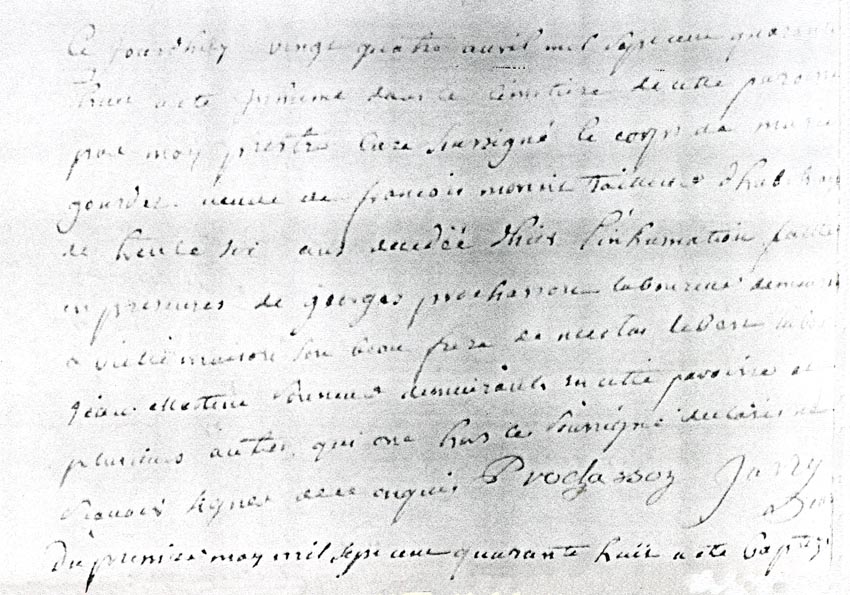 Ce jourdhuy vingt quatre avril mil sept cent quarante
huit a ete inhumé dans le cimetiere de cette paroisse
par moy prestre curé soussigné le corps de marie
gourdet veuve de francois monnit tailleur d'habits
de trente six ans decedée d'hier l'inhumation faitte
en presences de georges prochasson laboureur demeurant
a vieille maison son beau frere de nicolas lebert
jean martin demeurants en cette paroisse et
plusieurs autres qui ont hors ce soussigné declarés ne
scavoir signer de ce enquis Prochasson Jarry
Du premier may mil sept cent quarante huit a ete baptisé